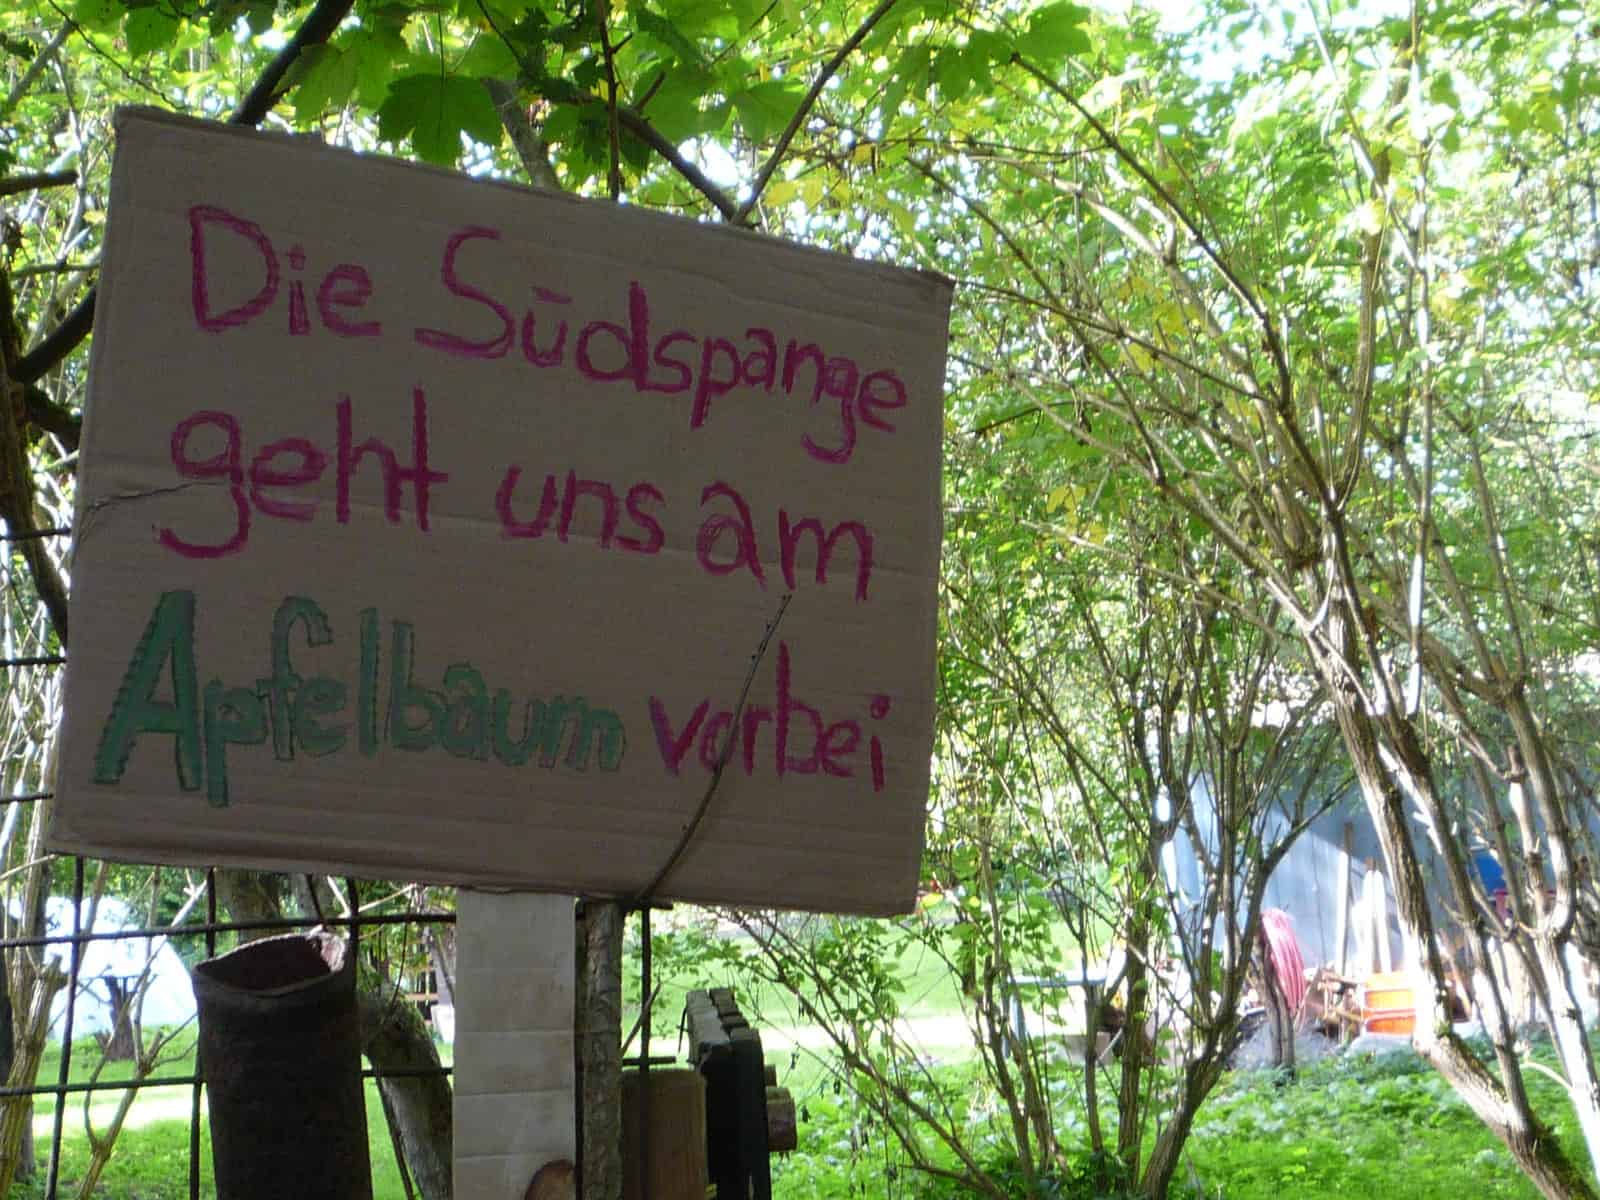 Die Südspange
geht uns am
Apfelbaum vorbei